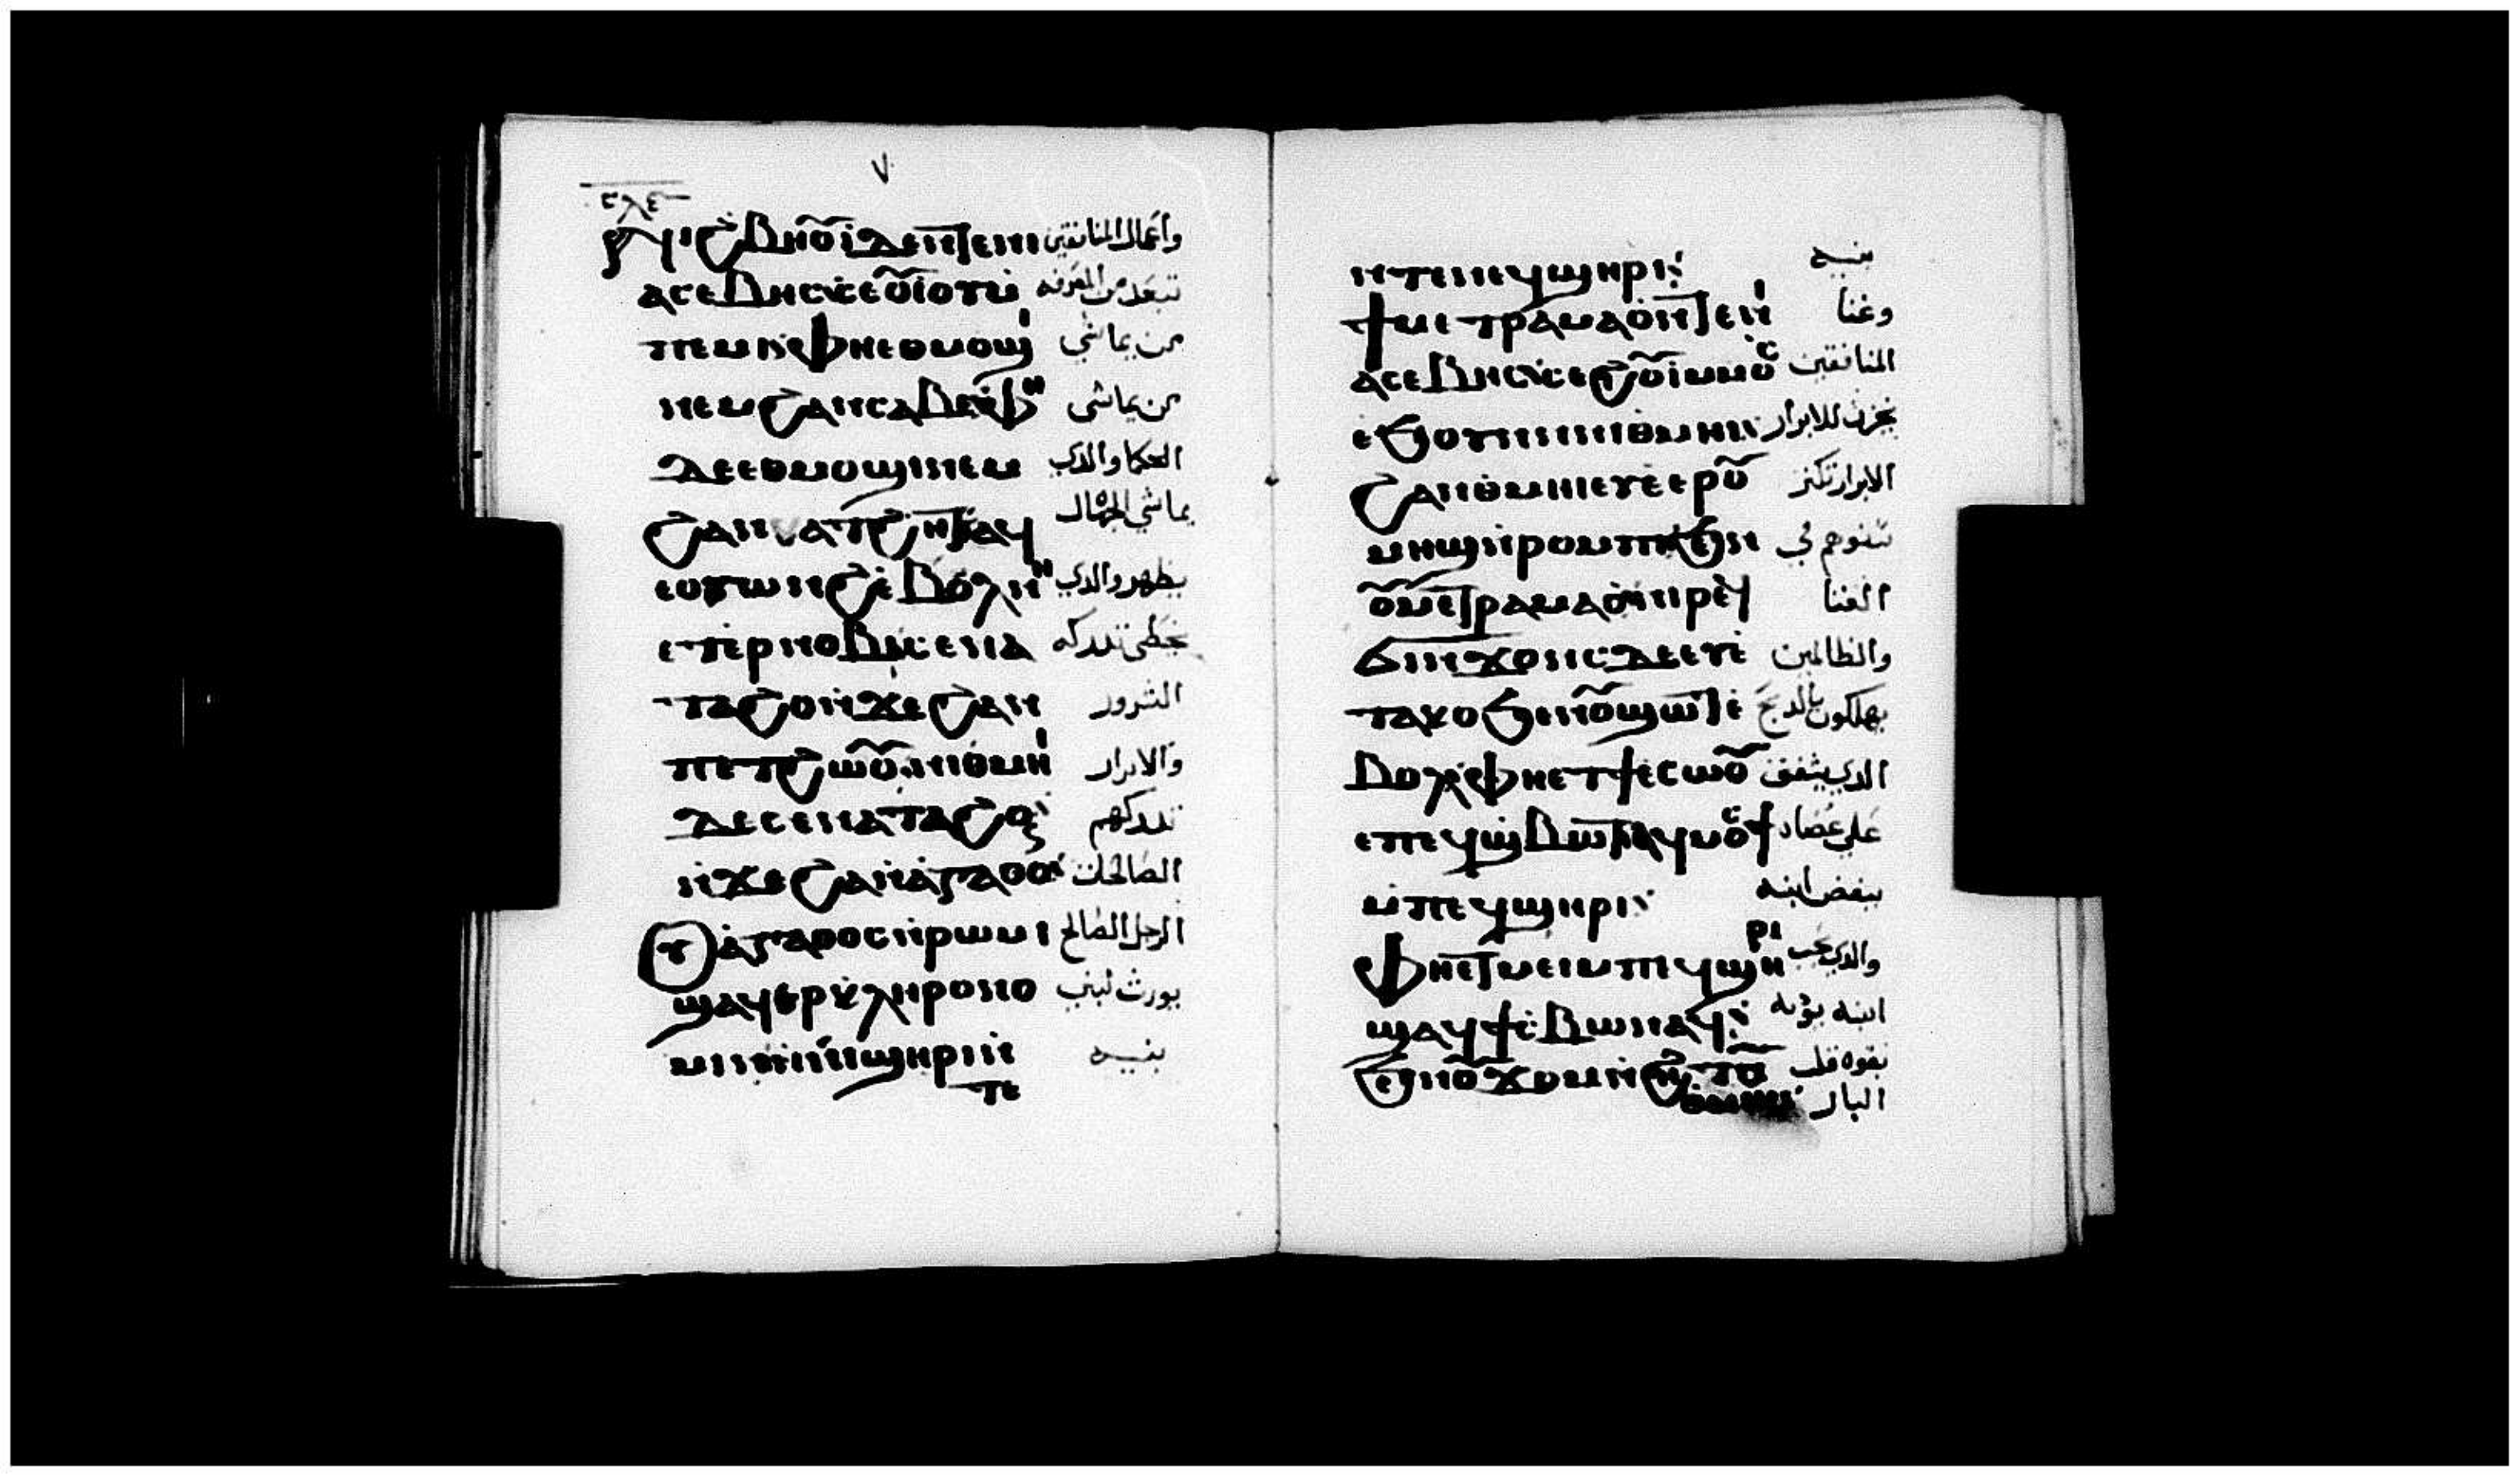 ٧
٢٩٤
ⲛⲓϩⲃⲏⲟⲩⲓ ⲇⲉ ⲛ̀ⲧⲉⲛⲓ وأعمال المنافقين
ⲁⲥⲉⲃⲏⲥ ⲥⲉⲟⲩⲓⲟⲩⲙ̀ تبعد من المعرفه
ⲡⲉⲙⲓ ⲫⲏⲉⲑⲙⲟϣⲓ من يماشي
ⲛⲉⲙ ϩⲁⲛⲥⲁⲃⲉⲩ ⲫⲏ من يماشى
ⲇⲉ ⲉⲑⲙⲟϣⲓ ⲛⲉⲙ الحكما والدي
ϩⲁⲛⲁⲧϩⲏⲧ ϥⲛⲁ يماشي الجهال
ⲉⲟⲩⲱⲛϩ ⲉ̀ⲃⲟⲗ ⲛⲏ يظهر والدي
ⲉⲧⲉⲣⲛⲟⲃⲓ ⲥⲉⲛⲁ يخطى تدركه
ⲧⲁϩⲟ ⲛ̀ϫⲉ ϩⲁⲛ الشرور
ⲡⲉⲧϩⲱⲟⲩ ⲛⲓⲑⲙⲏⲓ والابرار
ⲇⲉ ⲥⲉⲛⲁⲧⲁϩⲟ تدركهم
ⲛ̀ϫⲉ ϩⲁⲛⲁ̀ⲅⲁⲑⲟⲛ الصالحات
ⲟⲩⲁ̀ⲅⲁⲑⲟⲥ ⲛ̀ⲣⲱⲙⲓ الرجل الصالح
ϣⲁϥⲉⲣⲕ̀ⲗⲏⲣⲟⲛⲟ يورث لبني
ⲙⲓⲛ ⲛⲓϣⲏⲣⲓ ⲛ̀ بنيه
ⲧⲉ
ⲛ̀ⲧⲉⲛⲉϥϣⲏⲣⲓ بنيه
ϯⲙⲉⲧⲣⲁⲙⲁⲟ̀ ⲛ̀ⲧⲉⲛⲓ وغنا
ⲁⲥⲉⲃⲏⲥ ⲥⲉϩⲓⲟⲩⲓ ⲙ̀ⲙⲟⲥ المنافقين
ⲉϧⲟⲩⲛ ⲛ̀ⲛⲓⲑⲙⲏⲓ يخزن للابرار
ϩⲁⲛⲑⲙⲏⲓ ⲉⲩⲉ̀ⲉⲣⲟⲩ الابرار تكنز
ⲙⲏϣ ⲛ̀ⲣⲟⲙⲡⲓ ϧⲉⲛ سنوهم في
ⲟⲩⲙⲉⲧⲣⲁⲙⲁⲟ̀ ⲛⲓⲣⲉϥ الغنا
ϭⲓⲛ̀ϫⲟⲛⲥ ⲇⲉ ⲉⲩⲉ̀ والظالمين
ⲧⲁⲕⲟ ϧⲉⲛ ⲟⲩϣⲱⲧ ⲉ̀ يهلكون بالدبح
ⲃⲟⲗ ⲫⲏⲉⲧϯⲉⲥⲱⲟⲩ الدي يشفق
ⲉⲡⲉϥϣ̀ⲃⲱⲧ ϥⲙⲟⲥϯ على عصاه
ⲙ̀ⲡⲉϥϣⲏⲣⲓ يبغض ابنه
ⲫⲏⲉⲧⲙⲉⲓ ⲙ̀ⲡⲉϥϣⲏⲣⲓ والدي يحب
ϣⲁϥϯⲥ̀ⲃⲱ ⲛⲁϥ ابنه يؤدبه
ϧⲉⲛ ⲟⲩϫⲟⲙ ⲛ̀ϩⲏⲧ ⲟⲩ بقوه قلب
ⲑⲙⲏⲓ البار